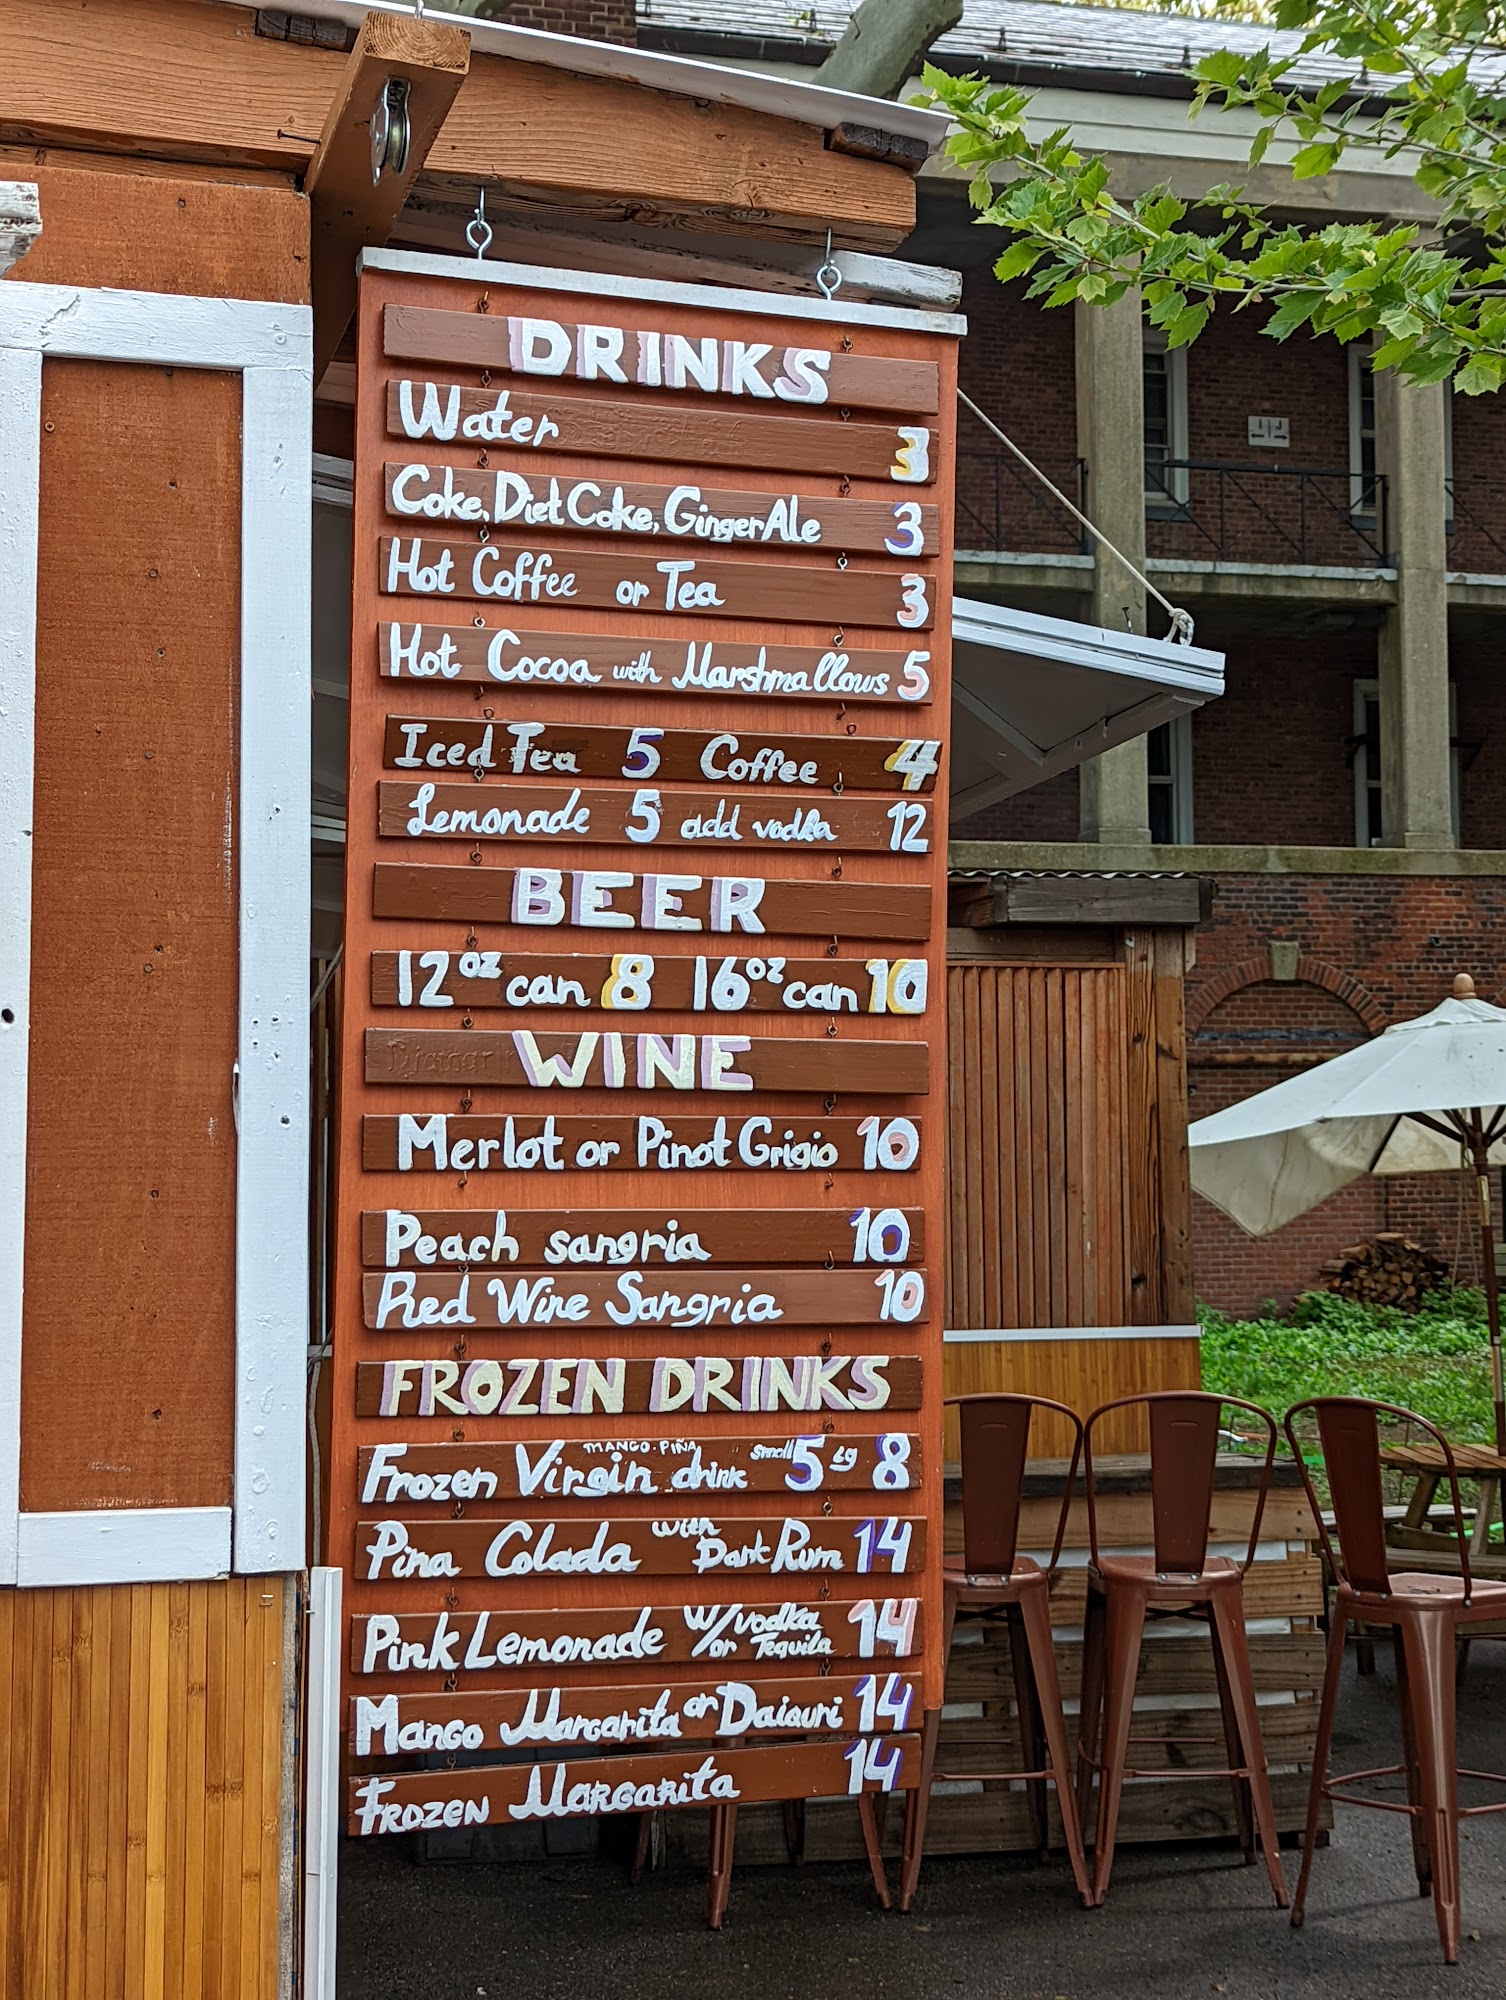 DRINKS
Water 3
Coke, Diet Coke, Ginger Ale 3
Hot Coffee or Tea 3
Hot Cocoa with Marshmallows 5
Iced Tea 5 Coffee 4
Lemonade 5 add vodka 12
BEER
12oz can 8 16oz can 10
WINE
Merlot or Pinot Grigio 10
Peach sangria 10
Red Wine Sangria 10
FROZEN DRINKS
MANGO · PIÑA
Frozen Virgin drink small 5 Lg 8
Pina Colada with Dark Rum 14
Pink Lemonade w/ vodka or Tequila 14
Mango Margarita or Daiquri 14
Frozen Margarita 14